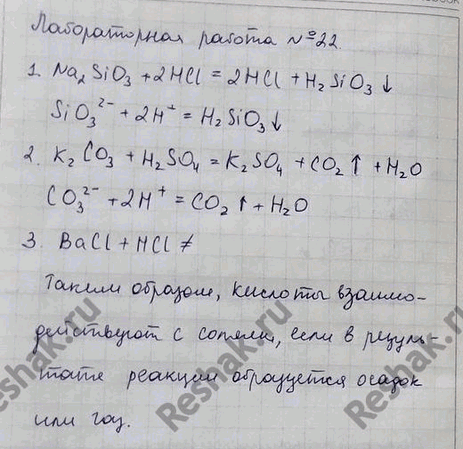 Лабораторная работа №22
1. Na₂SiO₃ + 2HCl = 2HCl + H₂SiO₃↓
SiO₃²⁻ + 2H⁺ = H₂SiO₃↓
2. K₂CO₃ + H₂SO₄ = K₂SO₄ + CO₂↑ + H₂O
CO₃²⁻ + 2H⁺ = CO₂↑ + H₂O
3. BaCl + HCl ≠
Таким образом, кислоты взаимо-
действуют с солями, если в резуль-
тате реакции образуется осадок
или газ.
Reshak.ru
Reshak.ru
Reshak.ru